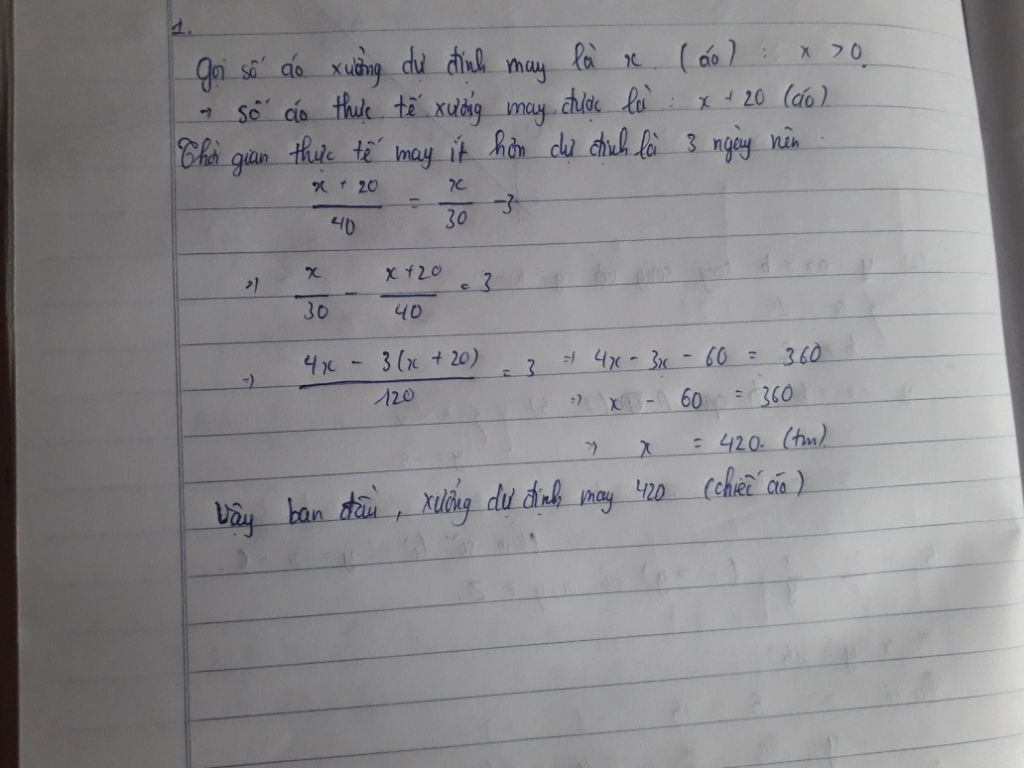 1.
Gọi số áo xưởng dự định may là x (áo) : x > 0
→ số áo thực tế xưởng may được là : x + 20 (áo)
Thời gian thực tế may ít hơn dự định là 3 ngày nên
x + 20 / 40 = x / 30 - 3
=> x / 30 - x + 20 / 40 = 3
=> 4x - 3(x + 20) / 120 = 3 => 4x - 3x - 60 = 360
=> x - 60 = 360
=> x = 420. (tm)
Vậy ban đầu, xưởng dự định may 420 (chiếc áo)